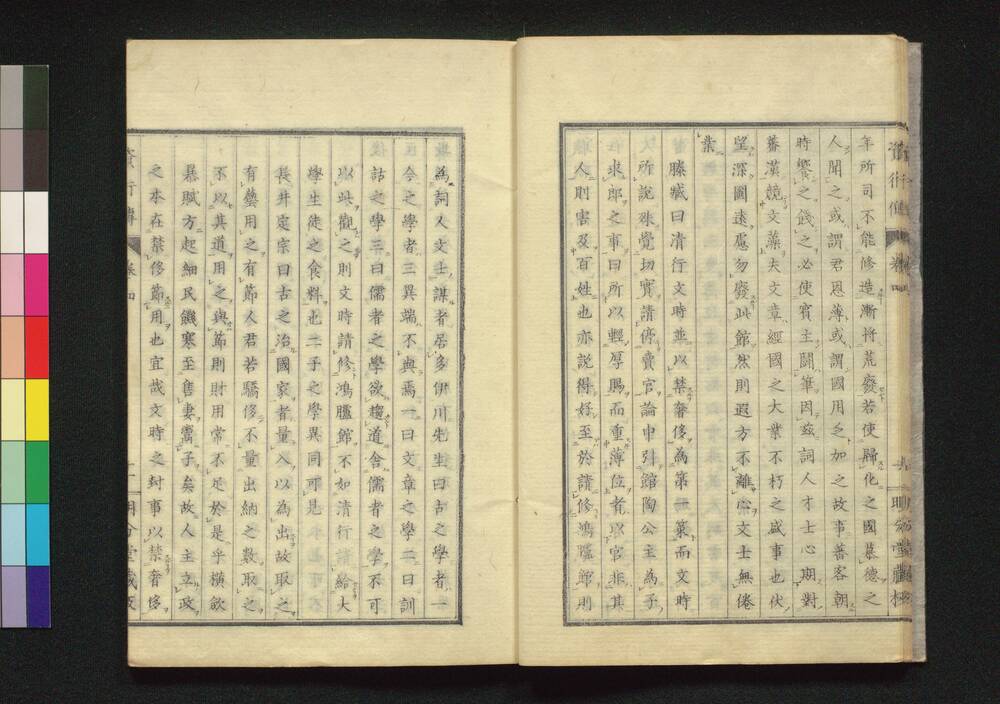 年所司不能修造漸將荒廢若使歸化之國慕德之
人聞之或謂君恩薄或謂國用乏加之故事蕃客朝
時饗之餞之必使賓主鬪筆因茲詞人才士心期對
蕃漢競文藻夫文章經國之大業不朽之盛事也伏
望深圖遠慮勿廢此館然則遐方不離心文士無倦
業
滕臧曰清行文時並以禁奢侈為第一策而文時
所說殊覺切實請停賣官論中引館陶公主為子
求郎之事曰所以輕厚賜而重薄位者以官非其
人則害及百姓也亦說得好至於請修鴻臚館則
為詞人文士謀者居多伊川先生曰古之學者一
今之學者三異端不與焉一曰文章之學二曰訓
詁之學三曰儒者之學欲趨道舍儒者之學不可
以此觀之則文時請修鴻臚館不如清行請給大
學生徒之食料也二子之學異同可見
長井定宗曰古之治國家者量入以為出故取之
有藝用之有節人君若驕侈不量出納之數取之
不以其道用之與節則財用常不足於是乎橫斂
暴賦方起細民饑寒至售妻鬻子矣故人主立政
之本在禁侈節用也宜哉文時之封事以禁奢侈